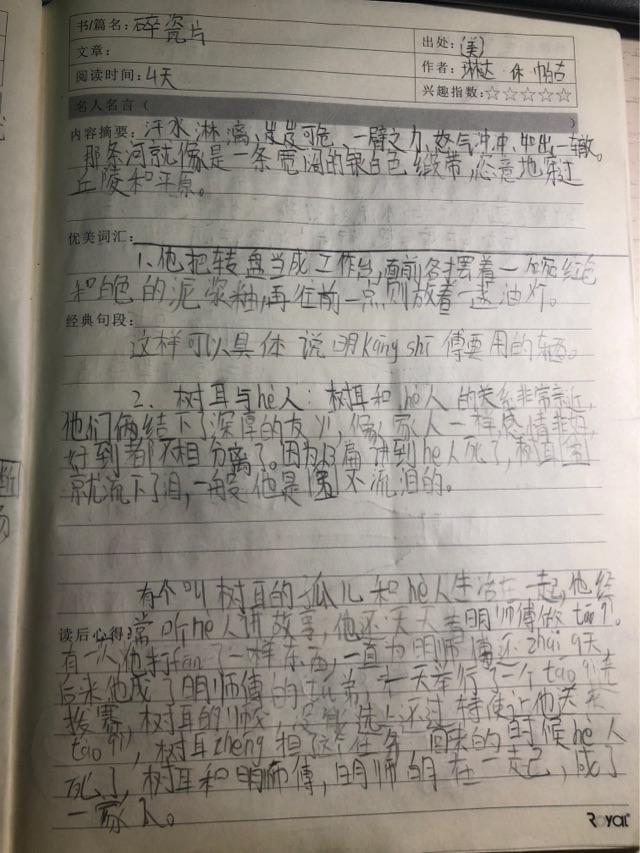 书/篇名：碎瓷片
出处：(美)
文章：
作者：琳达 休 帕古
阅读时间：4天
兴趣指数：☆☆☆☆☆
名人名言（
）
内容摘要：汗水淋漓、岌岌可危、一臂之力、怒气冲冲、如出一辙。
那条河就像是一条宽阔的银白色缎带，恣意地穿过
丘陵和平原。
优美词汇：
1、他把转盘当成工作台，面前各摆着一碗红色
和白色的泥浆釉，再往前一点则放着一盏油灯。
经典句段：
这样可以具体说明Kāng shī傅要用的东西。
2、树耳与hè人：树耳和hè人的关系非常亲近，
他们俩结下了深厚的友，像家人一样感情非
好到都不相分离了。因为13篇讲到hè人死了，树耳
就流下了泪，一般他是不流泪的。
有个叫树耳的孤儿和hè人生活在一起，他经
常听hè人讲故事，他还天天去明师傅做táo qì。
读后心得：
有一次他打fān了一样东西，一直为明师傅还zhài 9天，
后来他成了明师傅的，有一天举行了一个táo qì选
拔赛，树耳的师父，没能选上还过特使让他送来
táo qì，树耳chéng担了这个任务，回来的时候hè人
死了，树耳和明师傅，明师的在一起，成了
一家人。
Royal